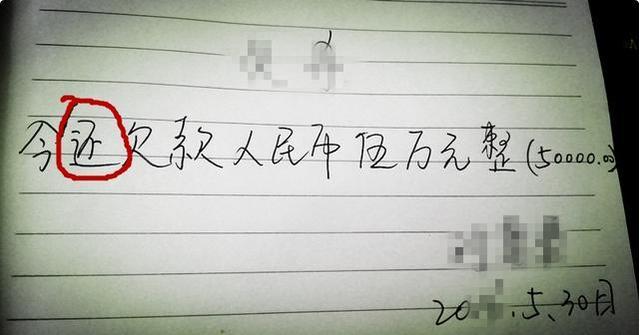 今还欠款人民币伍万元整(50000.00)
5.30日